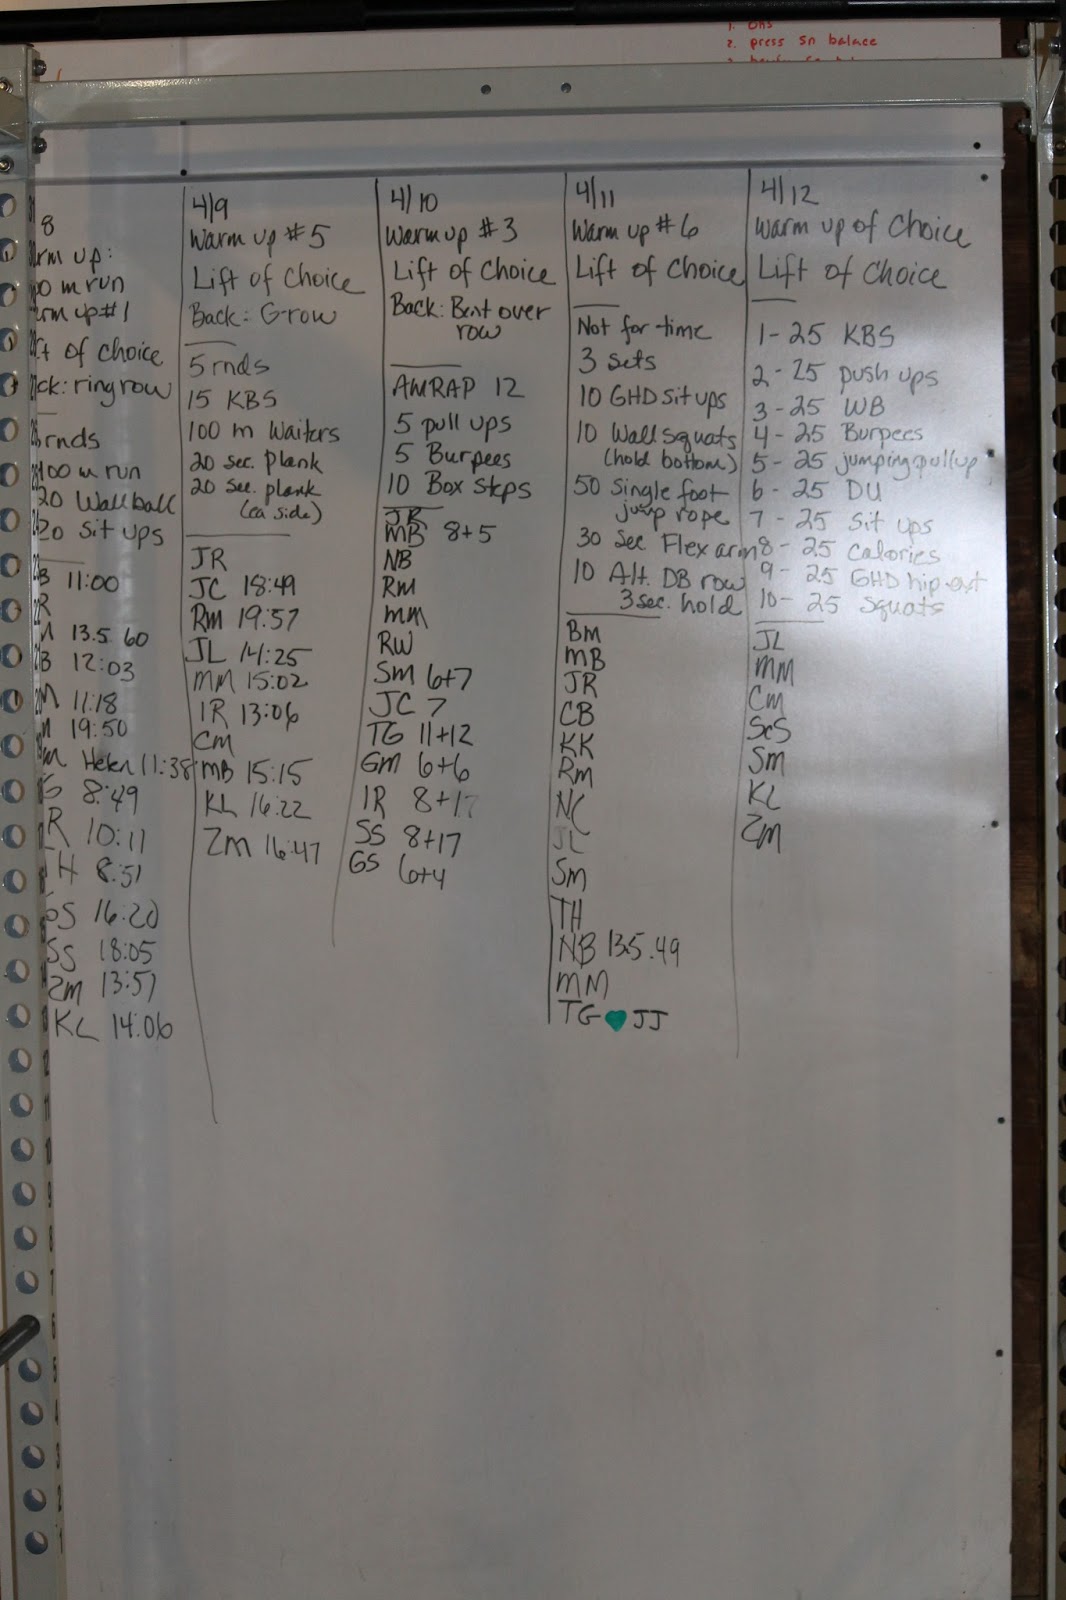 2. press sn balace
8
rm up:
00 m run
rm up #1
ft of choice
ck: ring row
rnds
400 m run
20 Wall ball
20 Sit ups
B 11:00
R
M 13.5 60
B 12:03
M 11:18
m 19:50
m Helen 11:38
S 8:49
R 10:11
H 8:51
GS 16:20
SS 18:05
ZM 13:57
KL 14:06
4/9
Warm up #5
Lift of Choice
Back: G-row
5 rnds
15 KBS
100 m Waiters
20 sec. plank
20 Sec. plank
(ea side)
JR
JC 18:49
Rm 19:57
JL 14:25
MM 15:02
IR 13:06
CM
MB 15:15
KL 16:22
ZM 16:47
4/10
Warm up #3
Lift of Choice
Back: Bent over
row
AMRAP 12
5 pull ups
5 Burpees
10 Box steps
JR
MB 8+5
NB
Rm
mm
RW
Sm 6+7
JC 7
TG 11+12
GM 6+6
IR 8+17
SS 8+17
GS 6+4
4/11
Warm up #6
Lift of Choice
Not for time
3 sets
10 GHD sit ups
10 Wall squats
(hold bottom)
50 Single foot
jump rope
30 sec Flex arm
10 Alt. DB row
3 sec. hold
BM
MB
JR
CB
KK
Rm
NC
JL
Sm
TH
NB 13.5.49
MM
TG ♥ JJ
4/12
Warm up of Choice
Lift of Choice
1 - 25 KBS
2 - 25 push ups
3 - 25 WB
4 - 25 Burpees
5 - 25 jumping pullup
6 - 25 DU
7 - 25 Sit ups
8 - 25 Calories
9 - 25 GHD hip ext
10 - 25 Squats
JL
MM
CM
ScS
Sm
KL
ZM